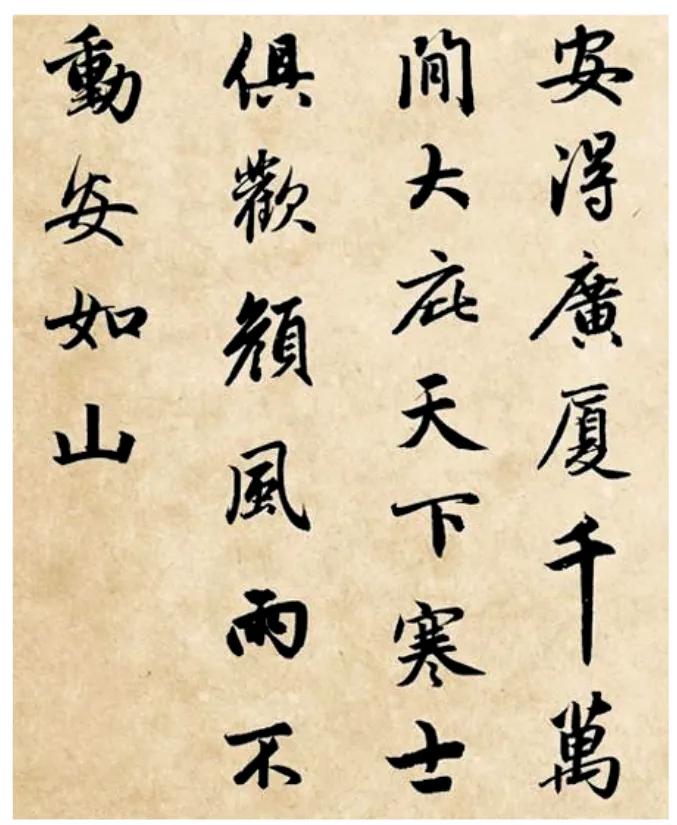 安得廣厦千萬
間大庇天下寒士
俱歡顔風雨不
動安如山